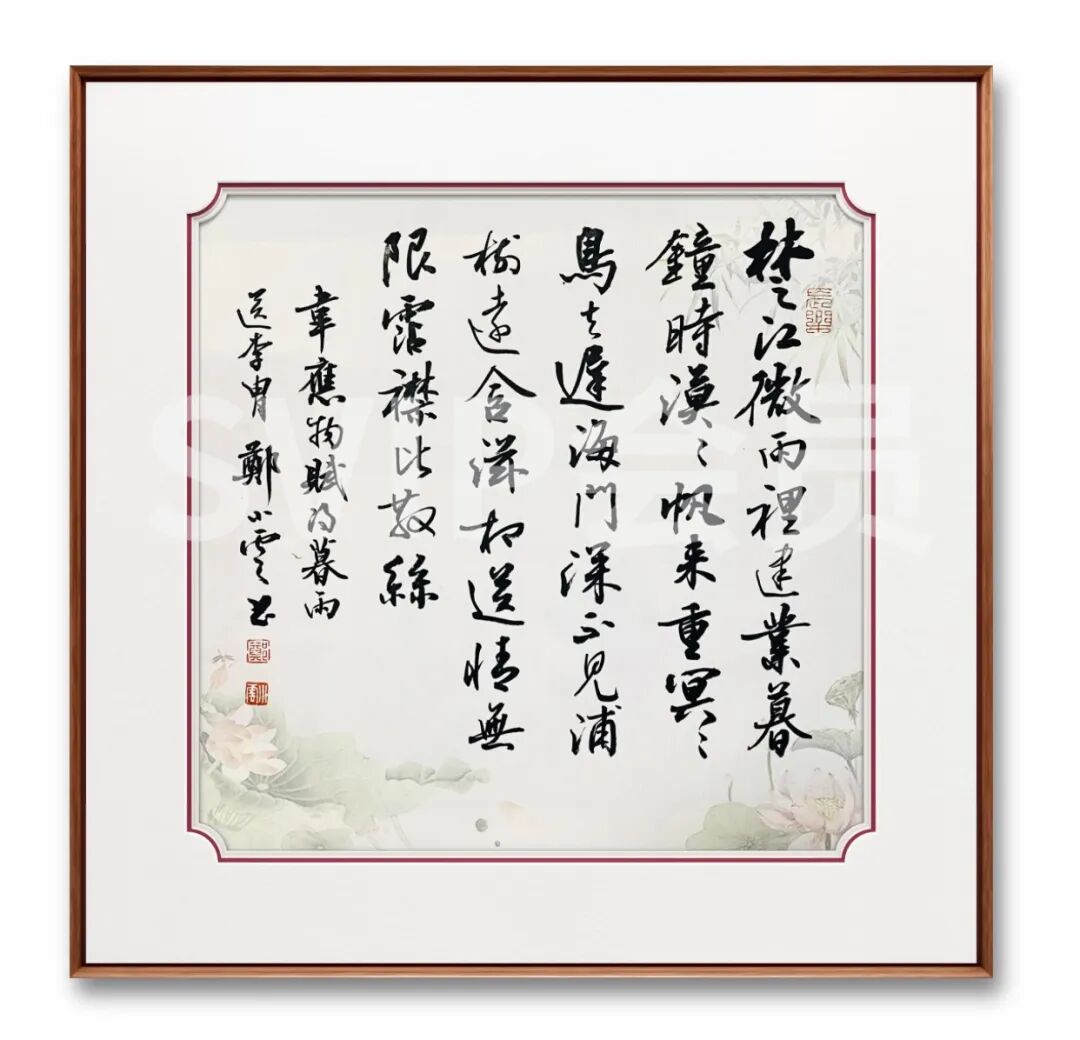 楚江微雨裡建業暮
鐘時漠〻帆来重冥〻
鳥去遲海門深不見浦
樹遠含滋相送情無
限霑襟比散絲
韋應物賦得暮雨
送李胄 鄭小雲书
SVIP会员